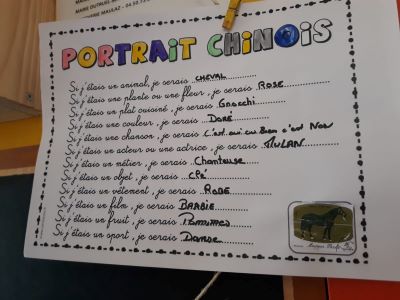 PORTRAIT CHINOIS
Si j'étais un animal, je serais CHEVAL
Si j'étais une plante ou une fleur, je serais ROSE
Si j'étais un plat cuisiné, je serais Gnocchi
Si j'étais une couleur, je serais DORÉ
Si j'étais une chanson, je serais C'est
Si j'étais un acteur ou une actrice, je serais MULAN
Si j'étais un métier, je serais Chanteuse
Si j'étais un objet, je serais
Si j'étais un vêtement, je serais ROBE
Si j'étais un film, je serais BARBIE
Si j'étais un fruit, je serais
Si j'étais un sport, je serais Danse